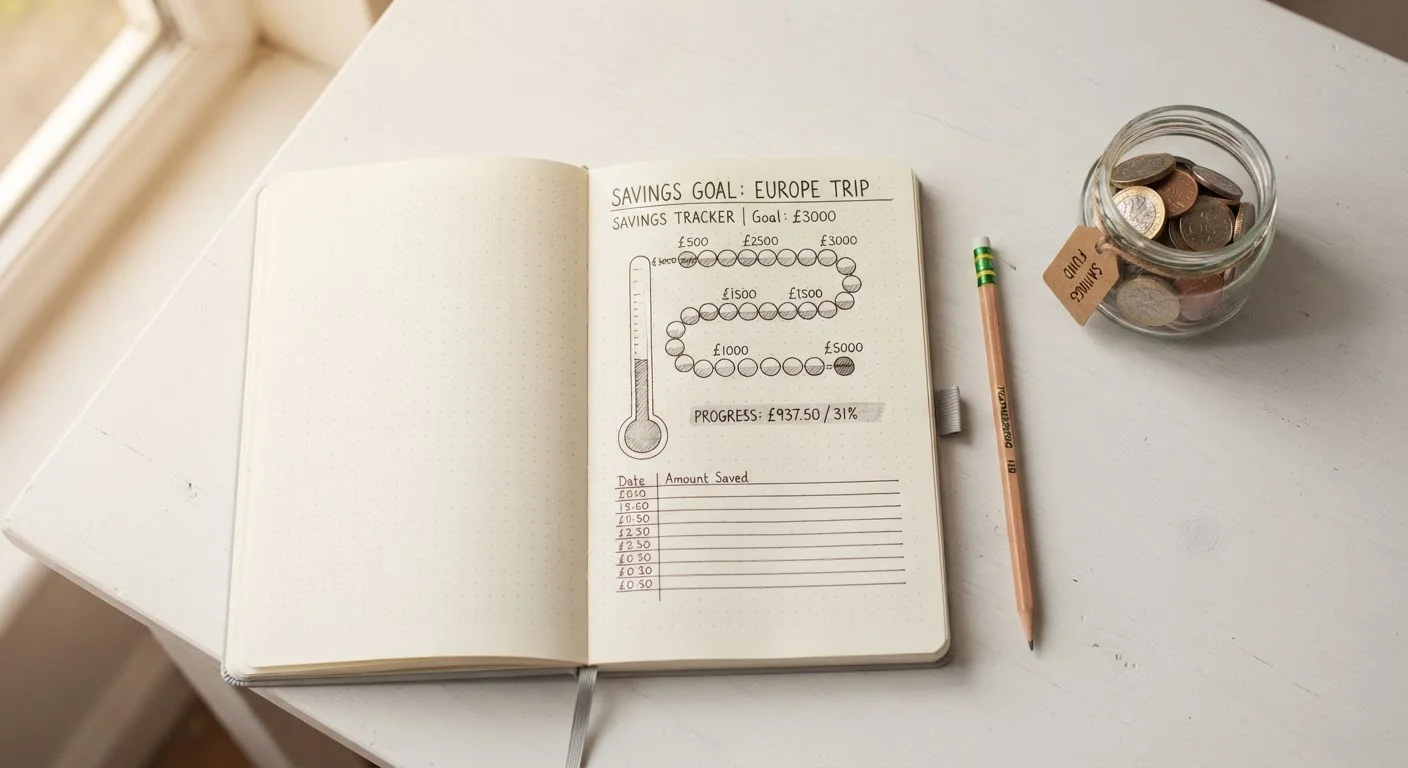 SAVINGS GOAL: EUROPE TRIP
SAVINGS TRACKER | Goal: £3000
£500 £2500 £3000
£3000
£1500 £1500
£1000 £5000
PROGRESS: £937.50 / 31%
Date Amount Saved
15.60
£0.50
£2.50
£0.30
£0.50
SAVINGS
FUND